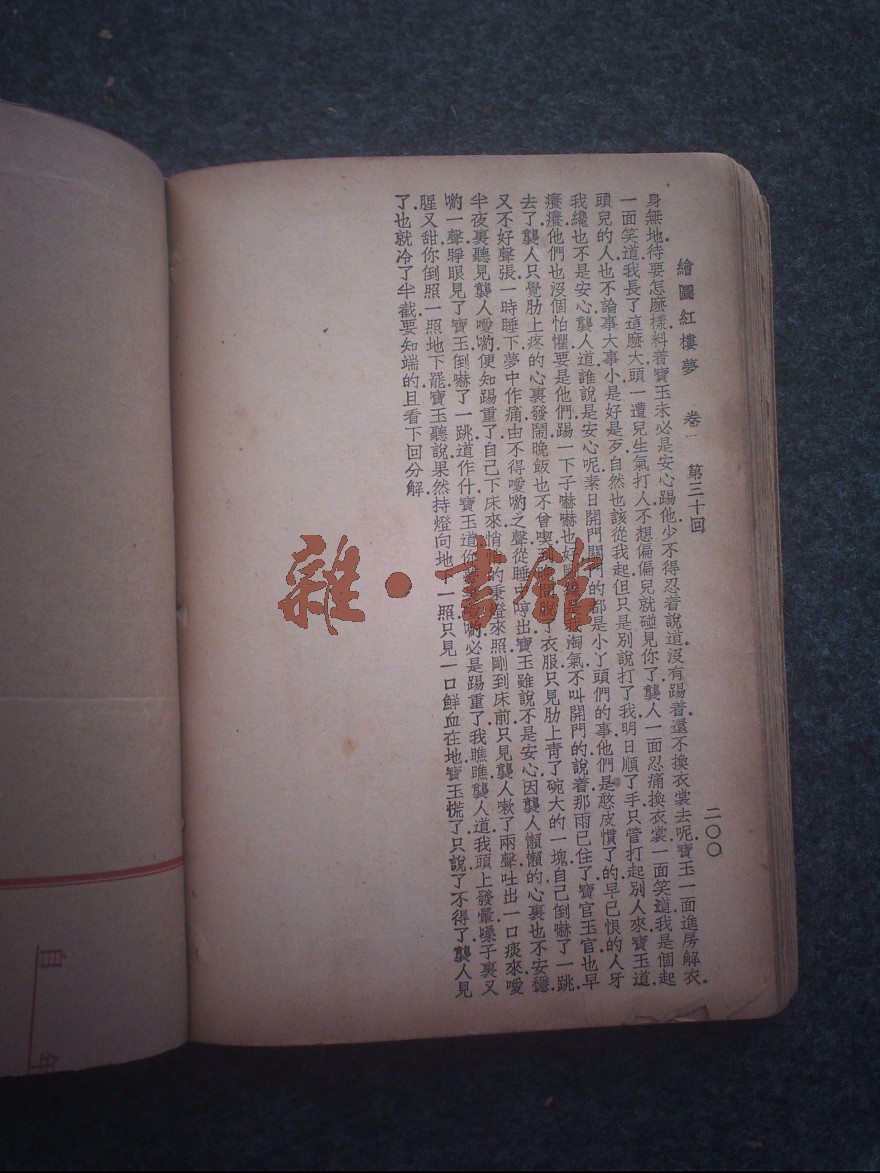 繪圖紅樓夢 卷一 第三十回 二〇〇
身無地待要怎麽樣料着寶玉未必是安心踢他少不得忍着說道沒有踢着還不換衣裳去呢寶玉一面進房解衣
一面笑道我長了這麽大頭一遭兒生氣打人不想偏偏兒就碰見你了襲人一面忍痛換衣裳一面笑道我是個起
頭兒的人也不論事大事小是好是歹自然也該從我起但只是別說打了我明日順了手只管打起別人來寶玉道
我纔也不是安心襲人道誰說是安心呢素日開門關門的都是小丫頭們的事他們是憨皮慣了的早已恨的人牙
癢癢他們也沒個怕懼要是他們踢一下子嚇嚇也好淘氣不叫開門的說着那雨已住了寶官玉官也早
去了襲人只覺肋上疼的心裏發鬧晚飯也不曾喫到了衣服只見肋上靑了碗大的一塊自己倒嚇了一跳
又不好聲張一時睡下夢中作痛由不得噯喲之聲從睡中哼出寶玉雖說不是安心因襲人懶懶的心裏也不安穩
半夜裏聽見襲人噯喲便知踢重了自己下床來悄悄的秉燈來照剛到床前只見襲人嗽了兩聲吐出一口痰來噯
喲一聲睜眼見了寶玉倒嚇了一跳道作什寶玉道你必是踢重了我瞧瞧襲人道我頭上發暈嗓子裏又
腥又甜你倒照一照地下罷寶玉聽說果然持燈向地一照只見一口鮮血在地寶玉慌了只說了不得了襲人見
了也就冷了半截要知端的且看下回分解
雜·書館
自 年